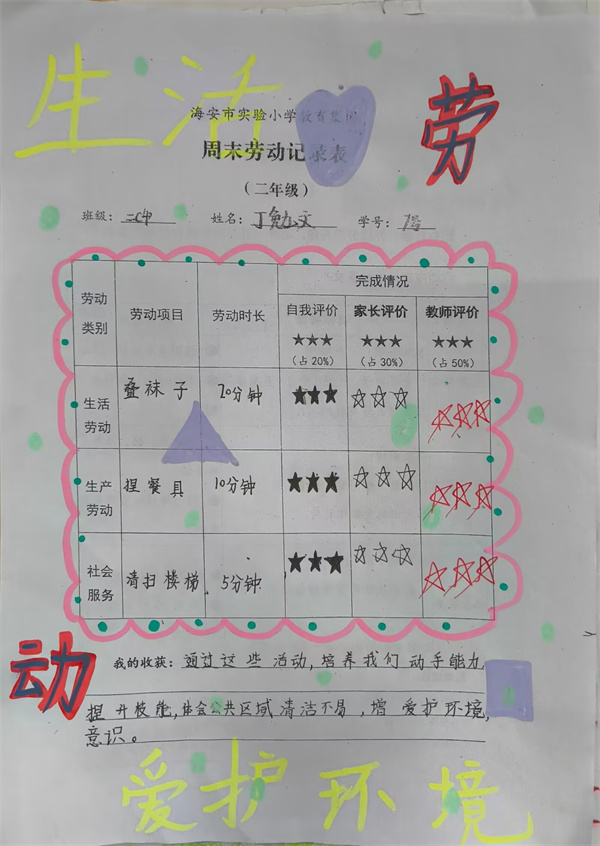 生活
劳
海安市实验小学教育集团
周末劳动记录表
（二年级）
班级： 姓名： 学号：
劳动类别 劳动项目 劳动时长 完成情况
自我评价 家长评价 教师评价
★★★ ★★★ ★★★
（占20%） （占30%） （占50%）
生活劳动 叠袜子 20分钟 ★★★ ☆☆☆ ☆☆☆
生产劳动 捏餐具 10分钟 ★★★ ☆☆☆ ☆☆☆
社会服务 清扫楼梯 5分钟 ★★★ ☆☆☆ ☆☆☆
动
我的收获：通过这些活动，培养我们动手能力
捏升技能，体会公共区域清洁不易，增爱护环境，
意识。
爱护环境